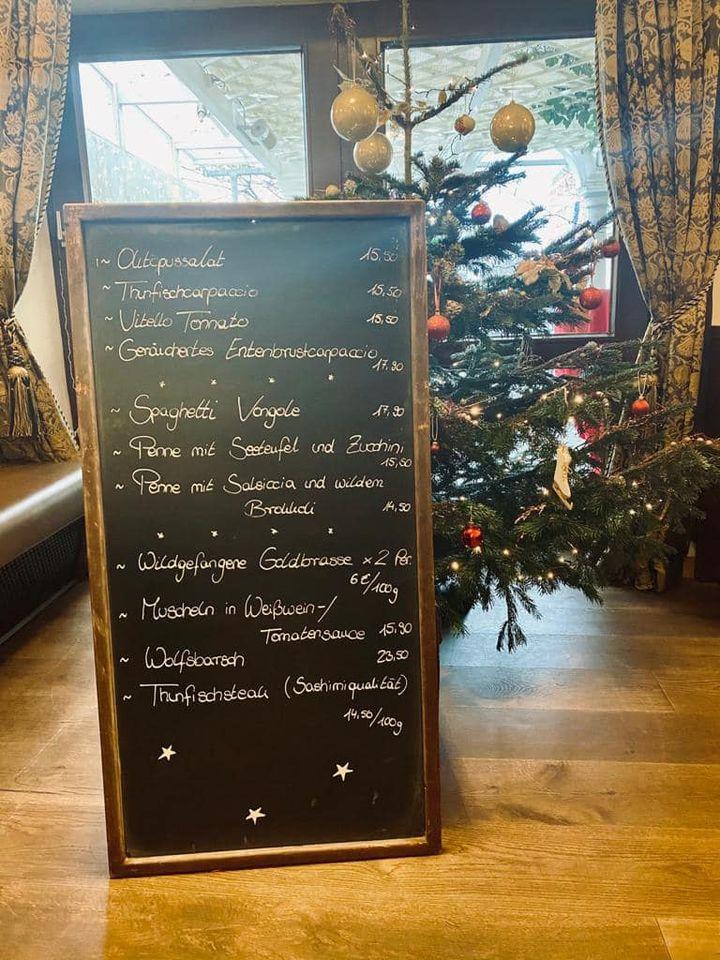 ~ Oktopussalat 15,50
~ Thunfischcarpaccio 15,50
~ Vitello Tonnato 15,50
~ Geräuchertes Entenbrustcarpaccio
17,90
~ Spaghetti Vongole 17,90
~ Penne mit Seeteufel und Zucchini
15,50
~ Penne mit Salsiccia und wildem
Brokkoli 14,50
~ Wildgefangene Goldbrasse x2 Per.
6€/100g
~ Muscheln in Weißwein-/
Tomatensauce 15,90
~ Wolfsbarsch 23,50
~ Thunfischsteak (Sashimiqualität)
14,50/100g